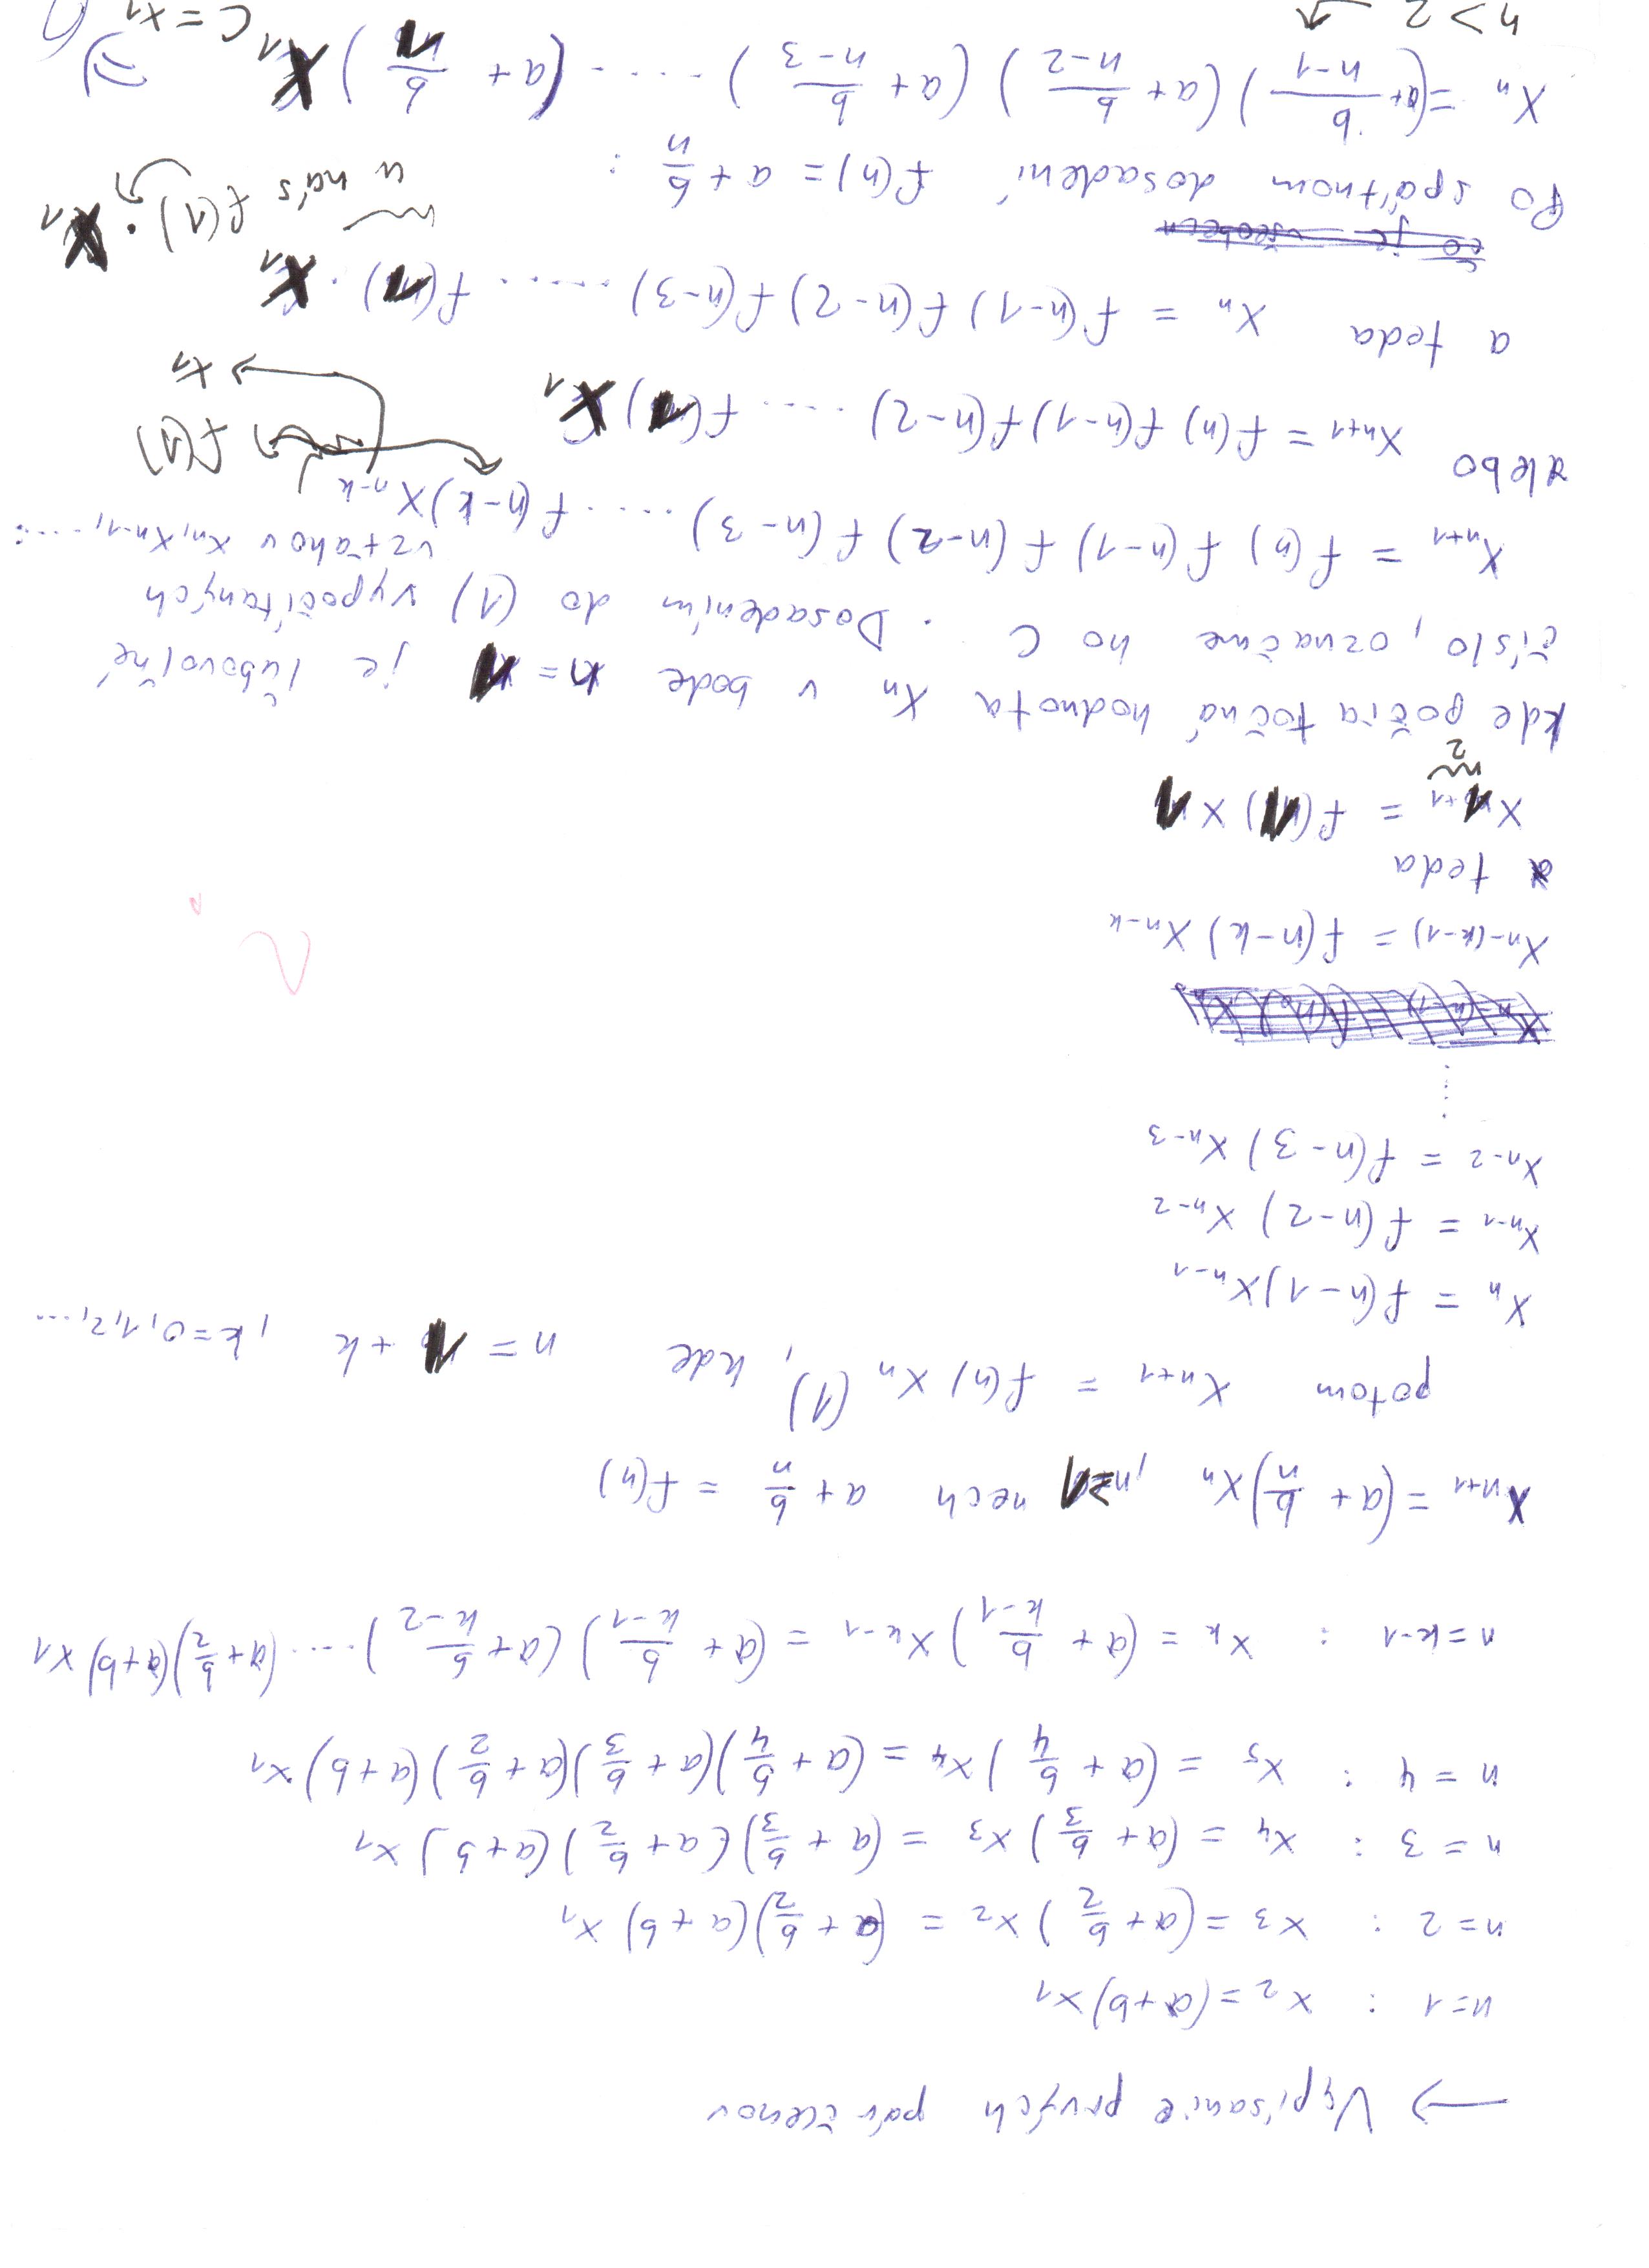 → Vypísanie prvých pár členov
n=1 : x₂ = (a+b)x₁
n=2 : x₃ = (a + b/2)x₂ = (a + b/2)(a+b)x₁
n=3 : x₄ = (a + b/3)x₃ = (a + b/3)(a + b/2)(a+b)x₁
n=4 : x₅ = (a + b/4)x₄ = (a + b/4)(a + b/3)(a + b/2)(a+b)x₁
n=k-1 : xₖ = (a + b/(k-1))xₖ₋₁ = (a + b/(k-1))(a + b/(k-2)) ..... (a + b/2)(a+b)x₁
xₙ₊₁ = (a + b/n)xₙ , n≥1 nech a + b/n = f(n)
potom xₙ₊₁ = f(n) xₙ (1) , kde n = 1 + k , k=0,1,2,...
xₙ = f(n-1)xₙ₋₁
xₙ₋₁ = f(n-2) xₙ₋₂
xₙ₋₂ = f(n-3) xₙ₋₃
.....
xₙ₋₍ₖ₋₁₎ = f(n-k) xₙ₋ₖ
a teda
x₁₊₁ = f(1) x₁
2
kde počiatočná hodnota xₙ v bode n=1 je ľubovoľné
číslo, označme ho C . Dosadením do (1) vypočítaných
vzťahov xₙ, xₙ₋₁, ....:
xₙ₊₁ = f(n) f(n-1) f(n-2) f(n-3) ..... f(n-k)xₙ₋ₖ
f(1)
alebo xₙ₊₁ = f(n) f(n-1) f(n-2) ..... f(1) x₁
x₁
a teda xₙ = f(n-1) f(n-2) f(n-3) ..... f(1) . x₁
u nás f(1) . x₁
čo je všeobecn
Po spätnom dosadení f(n) = a + b/n :
xₙ = (a + b/(n-1))(a + b/(n-2))(a + b/(n-3)) ..... (a + b/1) x₁
n > 2
C = x₁